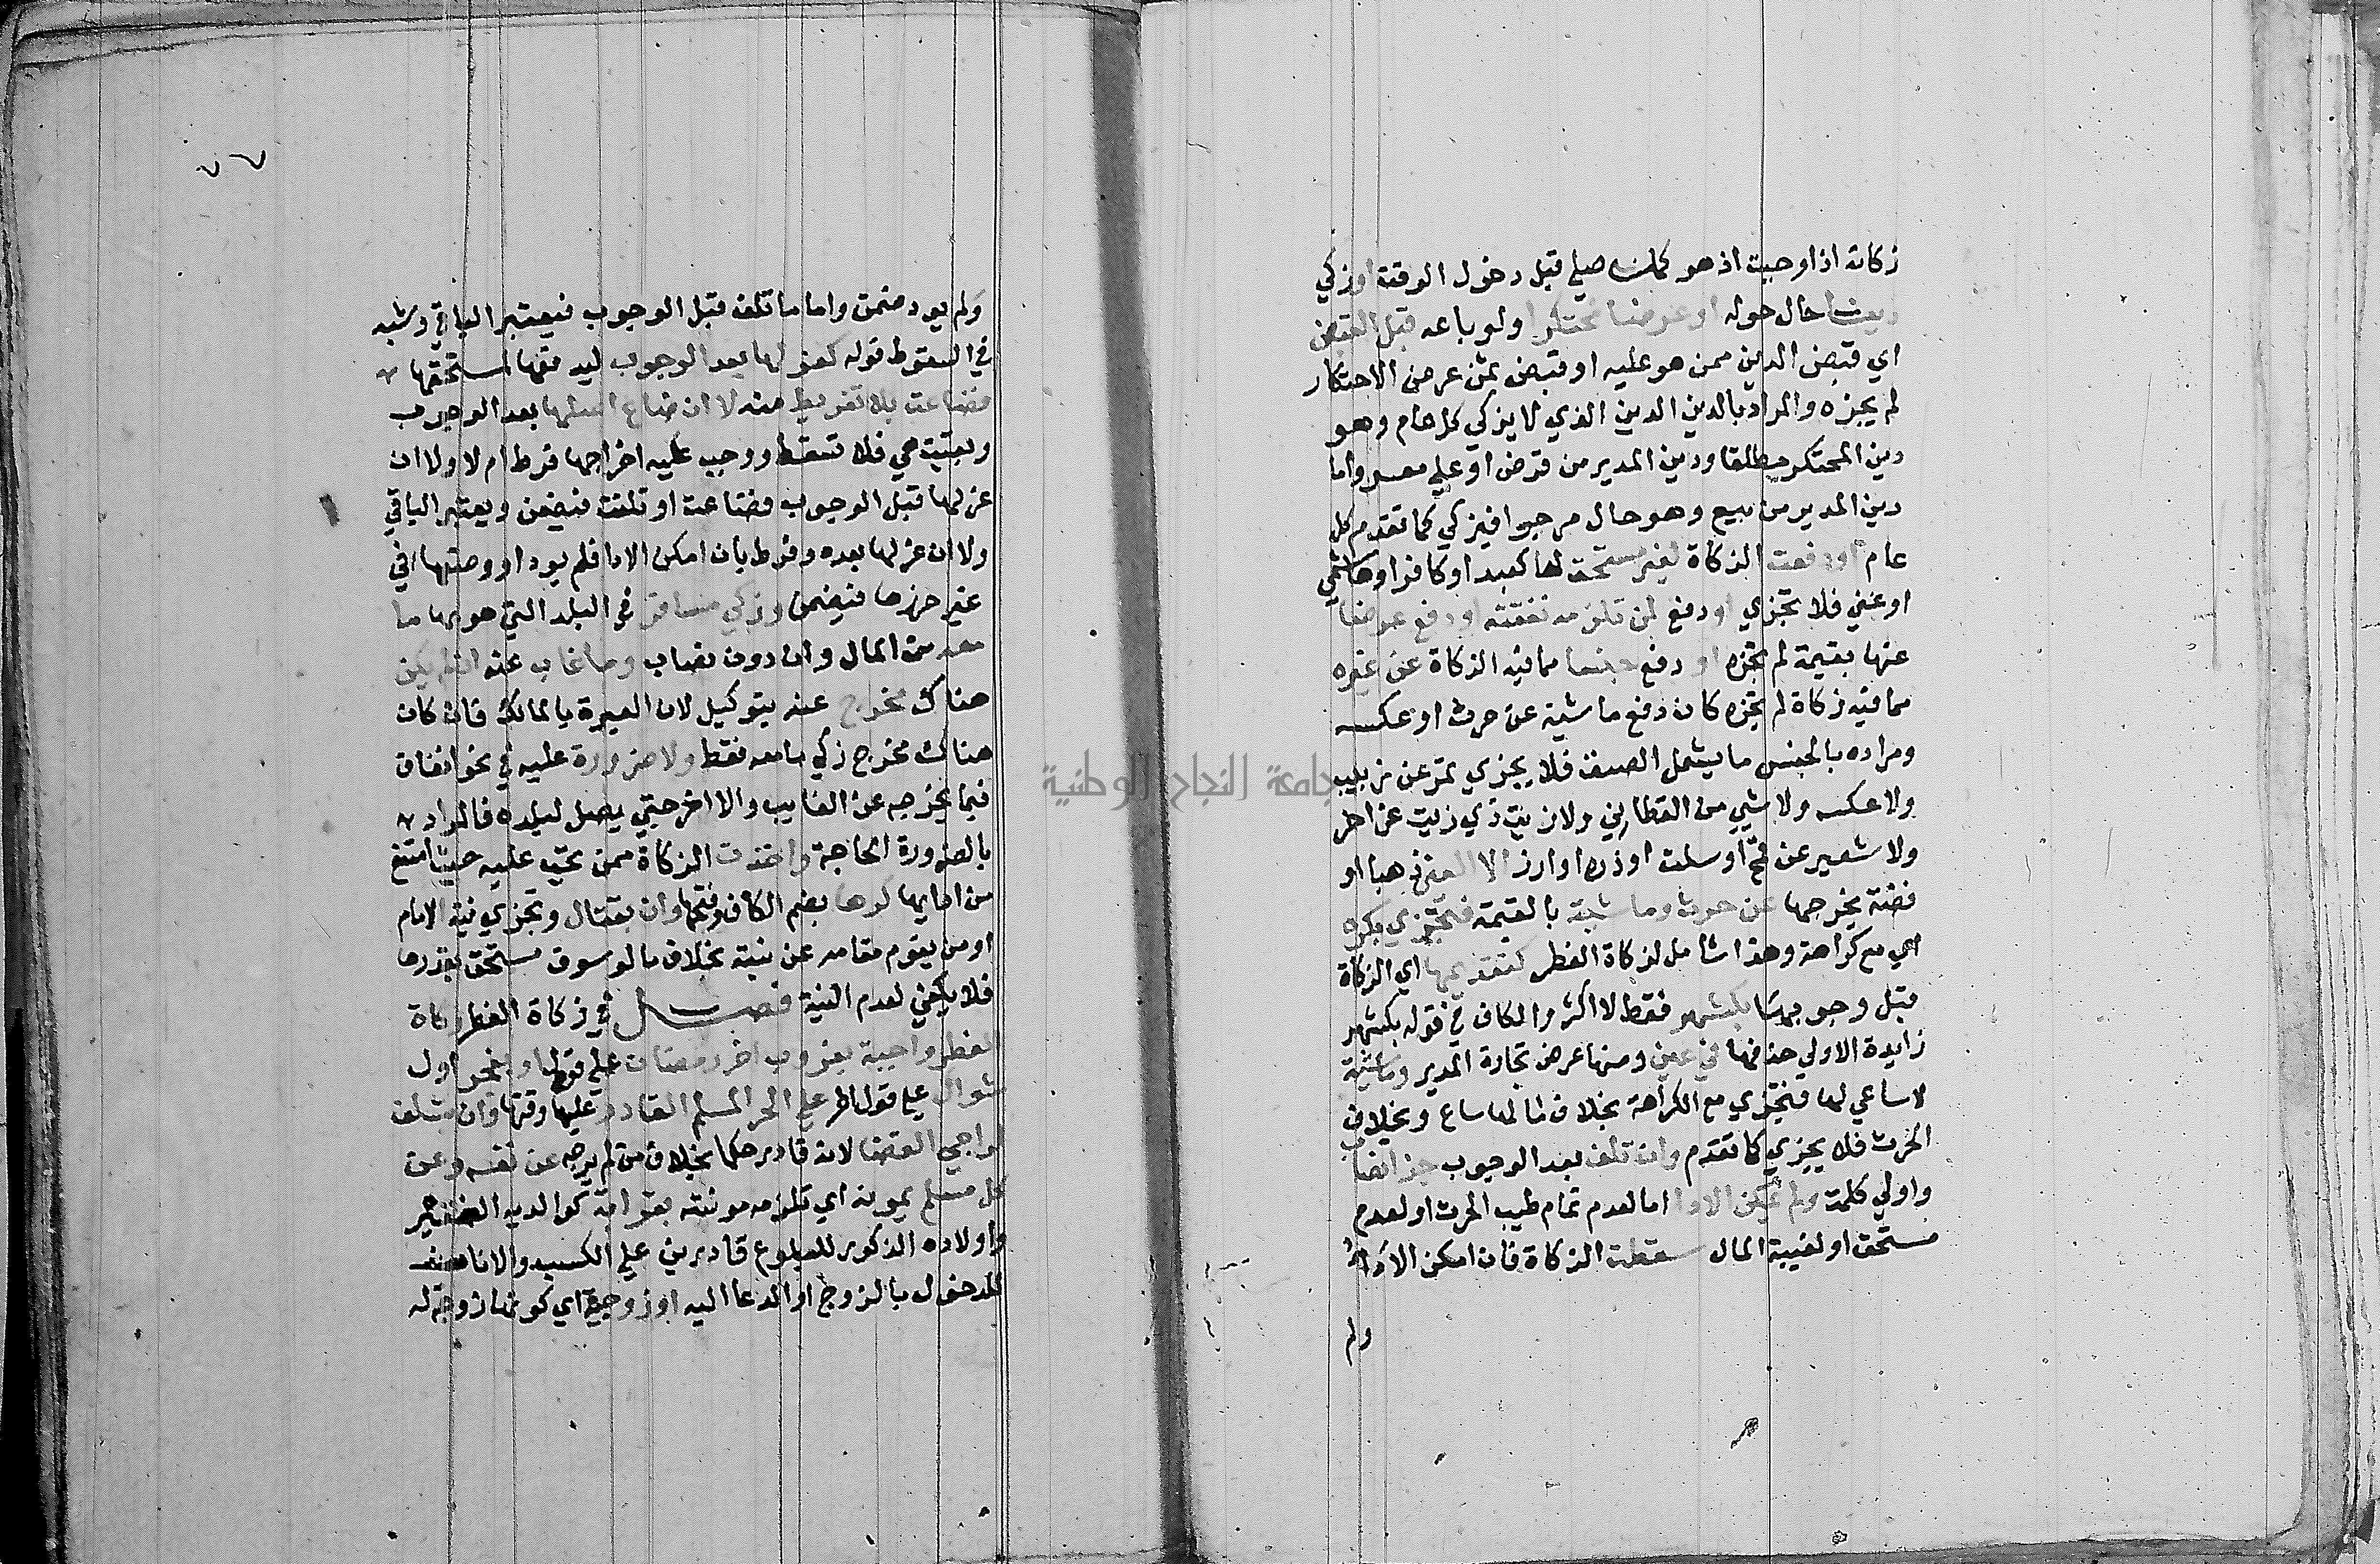 زكاته اذا وجبت اذ هو كمن صلي قبل دخول الوقت او زكي
دينا حال حوله او عرضا محتكرا ولو باعه قبل القبض
اي قبض الدين ممن هو عليه او قبض ثمن عرض الاحتكار
لم يجزه والمراد بالدين الدين الذي لا يزكي كل عام وهو
دين المحتكر مطلقا ودين المدير من قرض او علي معسر واما
دين المدير من بيع وهو حال مرجوا فيزكي كما تقدم كل
عام او دفعت الزكاة لغير مستحق لها كعبد او كافر او هاشمي
او غني فلا تجزي او دفع لمن تلزمه نفقته او دفع عرضا
عنها بقيمة لم تجزه او دفع جنسا مما فيه الزكاة عن غيره
مما فيه زكاة لم يجزه كان دفع ماشية عن حرث او عكسه
ومراده بالجنس ما يشمل الصنف فلا يجزي تمر عن زبيب
ولا عكسه ولا شيي من القطاني ولا زيت ذي زيت عن اخر
ولا شعير عن قمح او سلت او ذره او ارز الا العين ذهبا او
فضة يخرجها عن حرث وماشية بالقيمة فتجزي بكره
اي مع كراهة وهذا شامل لزكاة الفطر كتقديمها اي الزكاة
قبل وجوبها بكشهر فقط لا اكثر والكاف في قوله بكشهر
زايدة الاولي حذفها في عين ومنها عرض تجارة المدير وماشية
لا ساعي لها فتجزي مع الكراهة بخلاف ما لها ساع وبخلاف
الحرث فلا يجزي كما تقدم وان تلف بعد الوجوب جزء نصاب
واولي كلمت ولم يمكن الادا اما لعدم تمام طيب الحرث او لعدم
مستحق او لغيبة المال سقطت الزكاة فان امكن الاداء
ولم
٧٧
ولم يود ضمن واما ما تلف قبل الوجوب فيعتبر الباقي وشبه
في السقوط قوله كعزلها بعد الوجوب ليدفعها لمستحقها
فضاعت بلا تفريط منه لا ان ضاع اصلها بعد الوجوب
وبقيت هي فلا تسقط ووجب عليه اخراجها فرط ام لا ولا ان
عزلها قبل الوجوب فضاعت او تلفت فيضمن ويعتبر الباقي
ولا ان عزلها بعده وفرط بان امكن الادا فلم يود او وضعها في
غير حرزها فيضمن وزكي مسافر في البلد التي هو بها ما
معه من المال وان دون نصاب وما غاب عنه ان لم يكن
هناك مخرج عنه بتوكيل لان العبرة بالمالك فان كان
هناك مخرج زكي ما معه فقط ولا ضرورة عليه في نحو انفاق
فيما يخرجه عن الغايب والا اخر حتي يصل لبلده فالمراد
بالضرورة الحاجة واخذت الزكاة ممن تجب عليه حيث امتنع
من ادايها كرها بضم الكاف وفتحها وان بقتال وتجزي نية الامام
او من يقوم مقامه عن نيته بخلاف ما لو سرق مستحق بقدرها
فلا يكفي لعدم النية فصل في زكاة الفطر زكاة
الفطر واجبة بغروب اخر رمضان علي قول او بفجر اول
شوال علي قول اخر علي الحر المسلم القادر عليها وقتها وان بتسلف
لراجي القضا لانه قادر حكما بخلاف من لم يرجه عن نفسه وعن
كل مسلم يمونه اي تلزمه مونته بقرابة كوالديه الفقير
واولاده الذكور للبلوغ قادرين علي الكسب والاناث
للدخول بالزوج او الدعا اليه او زوجية اي كونها زوجة له
جامعة النجاح الوطنية